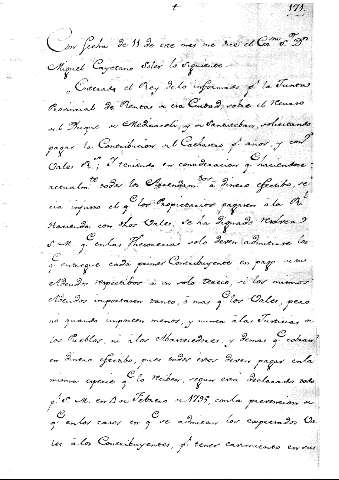 171.
Con fecha de 11 de este mes me dice el Exmo. Sr. Dn
Miguel Cayetano Soler lo siguiente.
Enterado el Rey de lo informado pr. la Junta
Provincial de Rentas de esa Ciudad, sobre el Recurso
del Duque de Medinaceli, y de Santisteban, solicitando
pagar la Contribucion del Catastro pr. años, y con
Vales Rs. Y teniendo en consideracion qe. haciendose
actualmte. todos los Arrendamtos. a dinero efectivo, se-
ria injusto el qe. los Propietarios pagasen á la Rl.
Hacienda con Vales, se ha dignado resolver
S. M. qe. en las Thesorerias solo deven admitirse los
qe. entregue cada primer Contribuyente en pago de sus
Adeudos respectivos á un solo tercio, si los mismos
Adeudos importasen tanto, ó mas qe. los Vales, pero
no quando importen menos, y nunca á las Justicias de
los Pueblos, ni á los Abastecedores, y demas qe. cobran
en dinero efectivo, pues todos estos deven pagar en la
misma especie qe. lo reciben, segun está declarado
pr. S. M. en 8 de Febrero de 1795, con la prevencion de
qe. en los casos en qe. se admitan los expresados Va-
les á los Contribuyentes, pr. tener cavimiento en sus